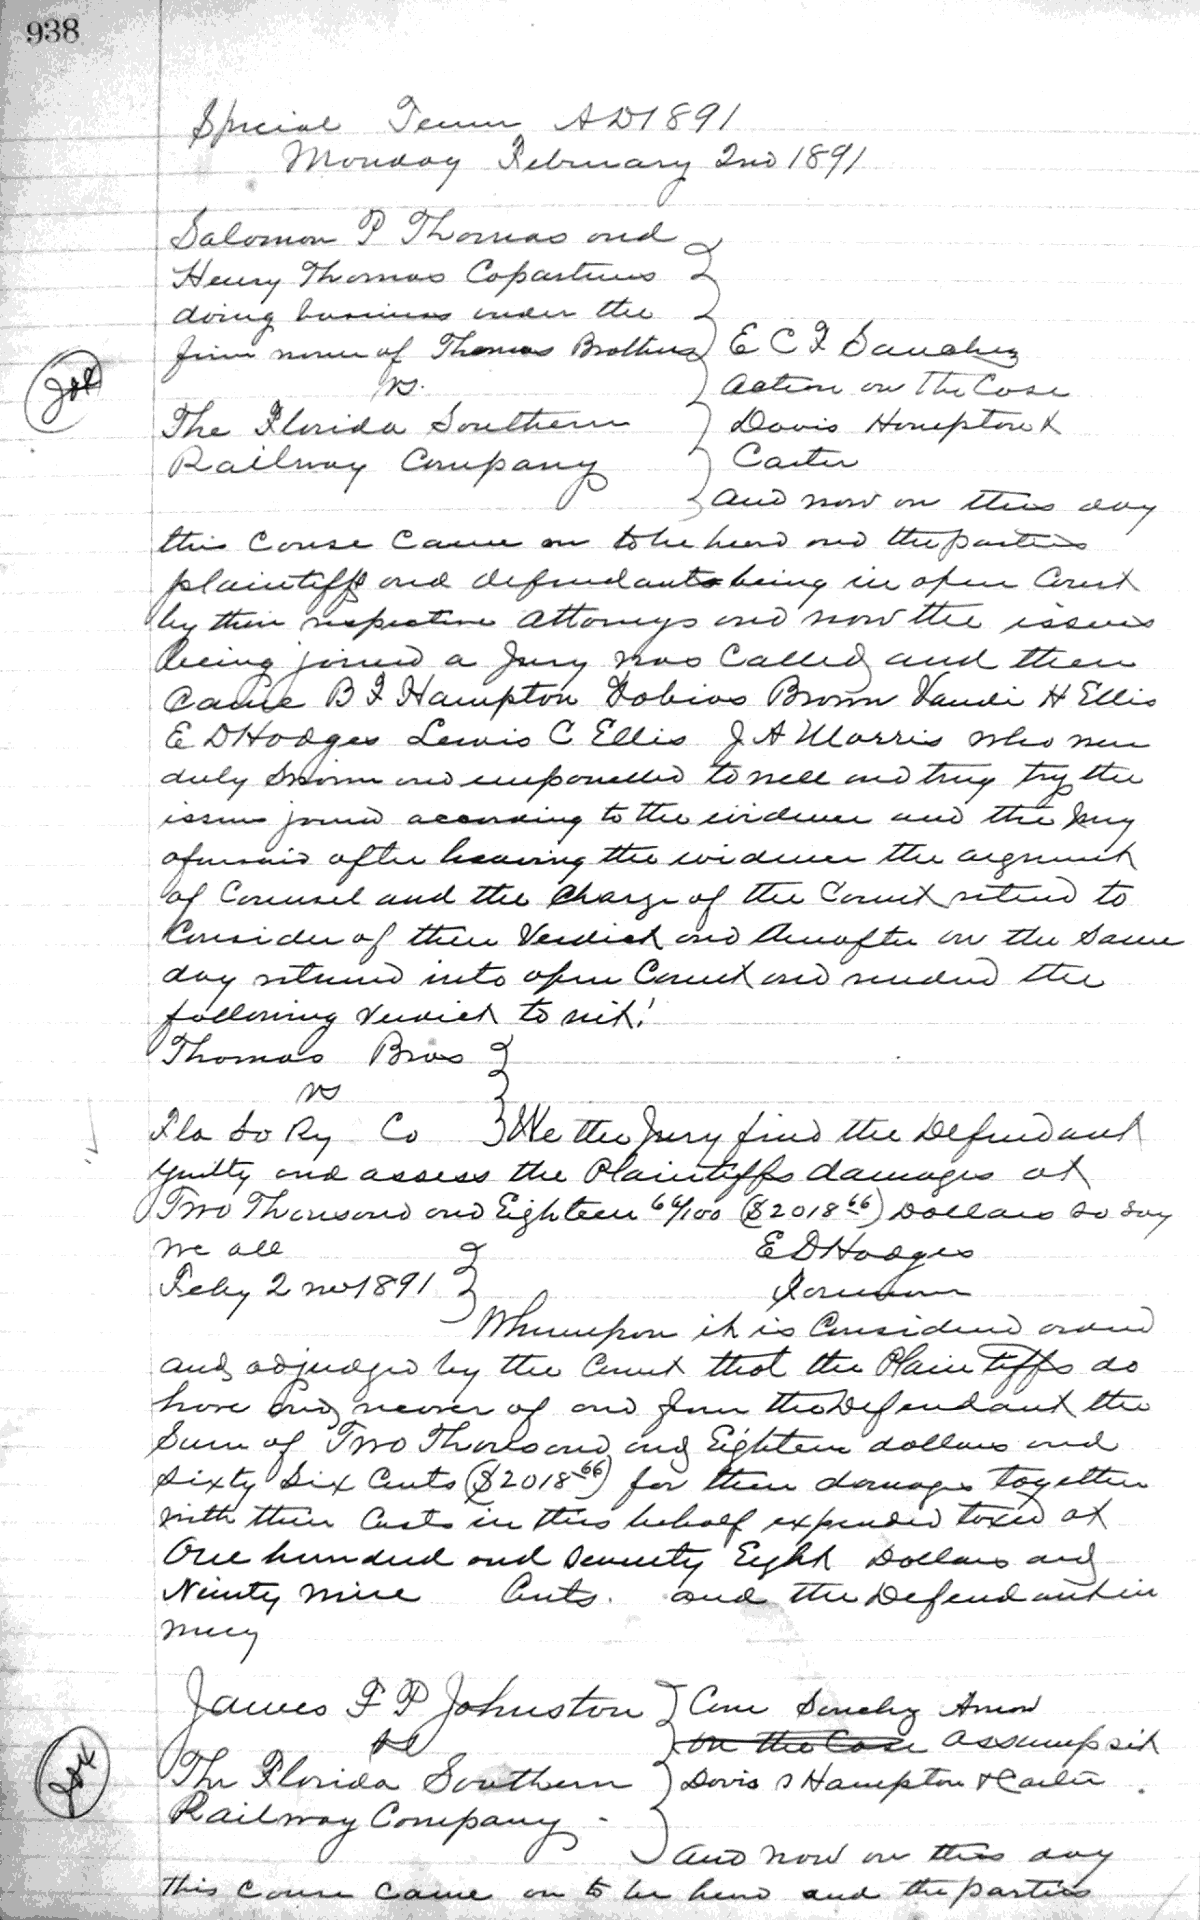 938
Special Term AD 1891
Monday February 2nd 1891
Salomon P Thomas and
Henry Thomas Copartners
doing business under the
firm name of Thomas Brothers
vs.
The Florida Southern
Railway Company
E C F Sanchez
Action on The Case
Davis Hampton &
Carter
And now on this day
this Cause Came on to be heard and the parties
plaintiffs and defendants being in open Court
by their respective Attorneys and now the issues
being joined a Jury was Called and then
Came B F Hampton Tobias Brown Vandi H Ellis
E D Hodges Lewis C Ellis J A Morris who were
duly Sworn and empanelled to well and truly try the
issues joined according to the evidence and the Jury
aforesaid after hearing the evidence the argument
of Counsel and the Charge of the Court retired to
Consider of their Verdict and thereafter on the Same
day returned into open Court and rendered the
following Verdict to wit:
Thomas Bros
vs
Fla So Ry Co
We the Jury find the Defendant
guilty and assess the Plaintiffs damages at
Two Thousand and Eighteen 66/100 ($2018 66) Dollars So Say
We all
E D Hodges
Feby 2nd 1891
Foreman
Whereupon it is Considered ordered
and adjudged by the Court that the Plaintiffs do
have and recover of and from the Defendant the
Sum of Two Thousand and Eighteen dollars and
Sixty Six Cents ($2018 66) for their damages together
with their Costs in this behalf expended taxed at
One hundred and Seventy Eight Dollars and
Ninety nine Cents. and the Defendant in
mercy
James F P Johnston
vs
The Florida Southern
Railway Company
on the Case Assumpsit
Davis & Hampton & Carter
And now on this day
this Cause Came on to be heard and the parties